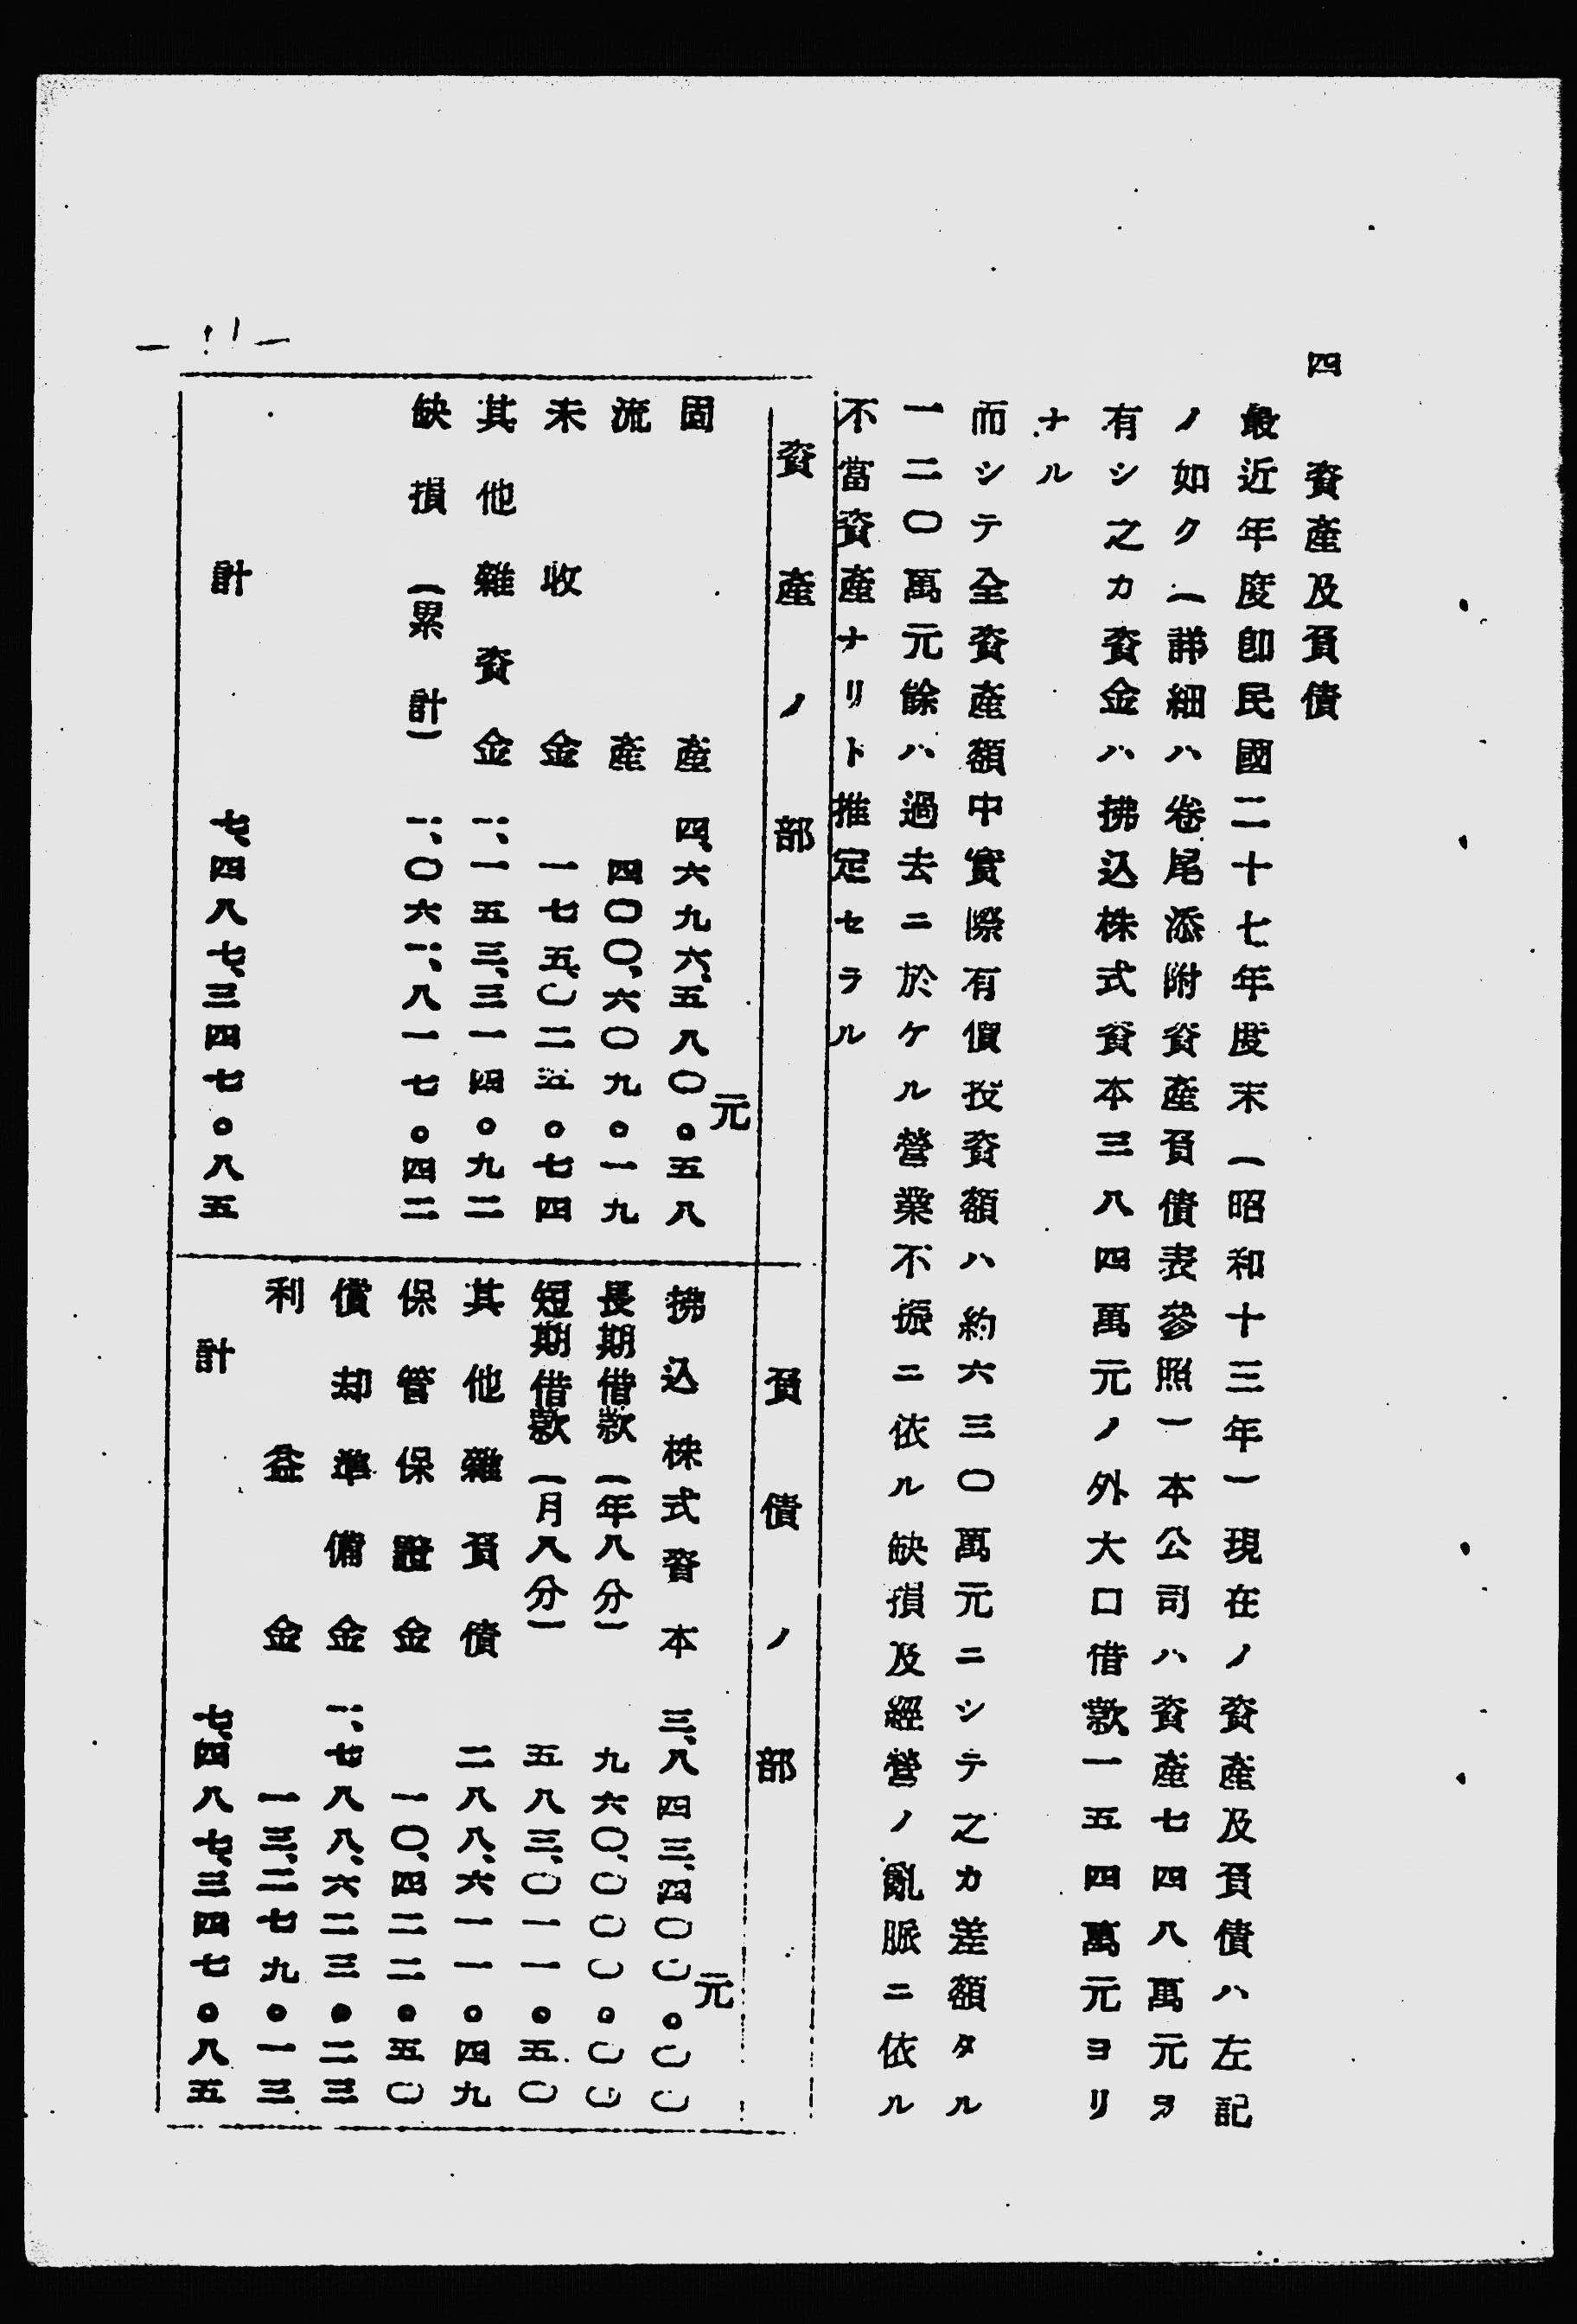 四　資產及負債
最近年度卽民國二十七年度末（昭和十三年）現在ノ資產及負債ハ左記
ノ如ク（詳細ハ卷尾添附資產負債表參照）本公司ハ資產七四八萬元ヲ
有シ之カ資金ハ拂込株式資本三八四萬元ノ外大口借款一五四萬元ヨリ
ナル
而シテ全資產額中實際有價投資額ハ約六三〇萬元ニシテ之カ差額タル
一二〇萬元餘ハ過去ニ於ケル營業不振ニ依ル缺損及經營ノ亂脈ニ依ル
不當資產ナリト推定セラル
資產ノ部
元
固產　四、六九六、五八〇。五八
流產　四〇〇、六〇九。一九
未收金　一七五、〇二五。七四
其他雜資金　一、一五三、三一四。九二
缺損（累計）　一、〇六一、八一七。四二
計　七、四八七、三四七。八五
負債ノ部
元
拂込株式資本　三、八四三、四〇〇。〇〇
長期借款（年八分）　九六〇、〇〇〇。〇〇
短期借款（月八分）　五八三、〇一一。五〇
其他雜負債　二八八、六一一。四九
保管保證金　一〇、四二二。五〇
償却準備金　一、七八八、六二三。二三
利益金　一三、二七九。一三
計　七、四八七、三四七。八五